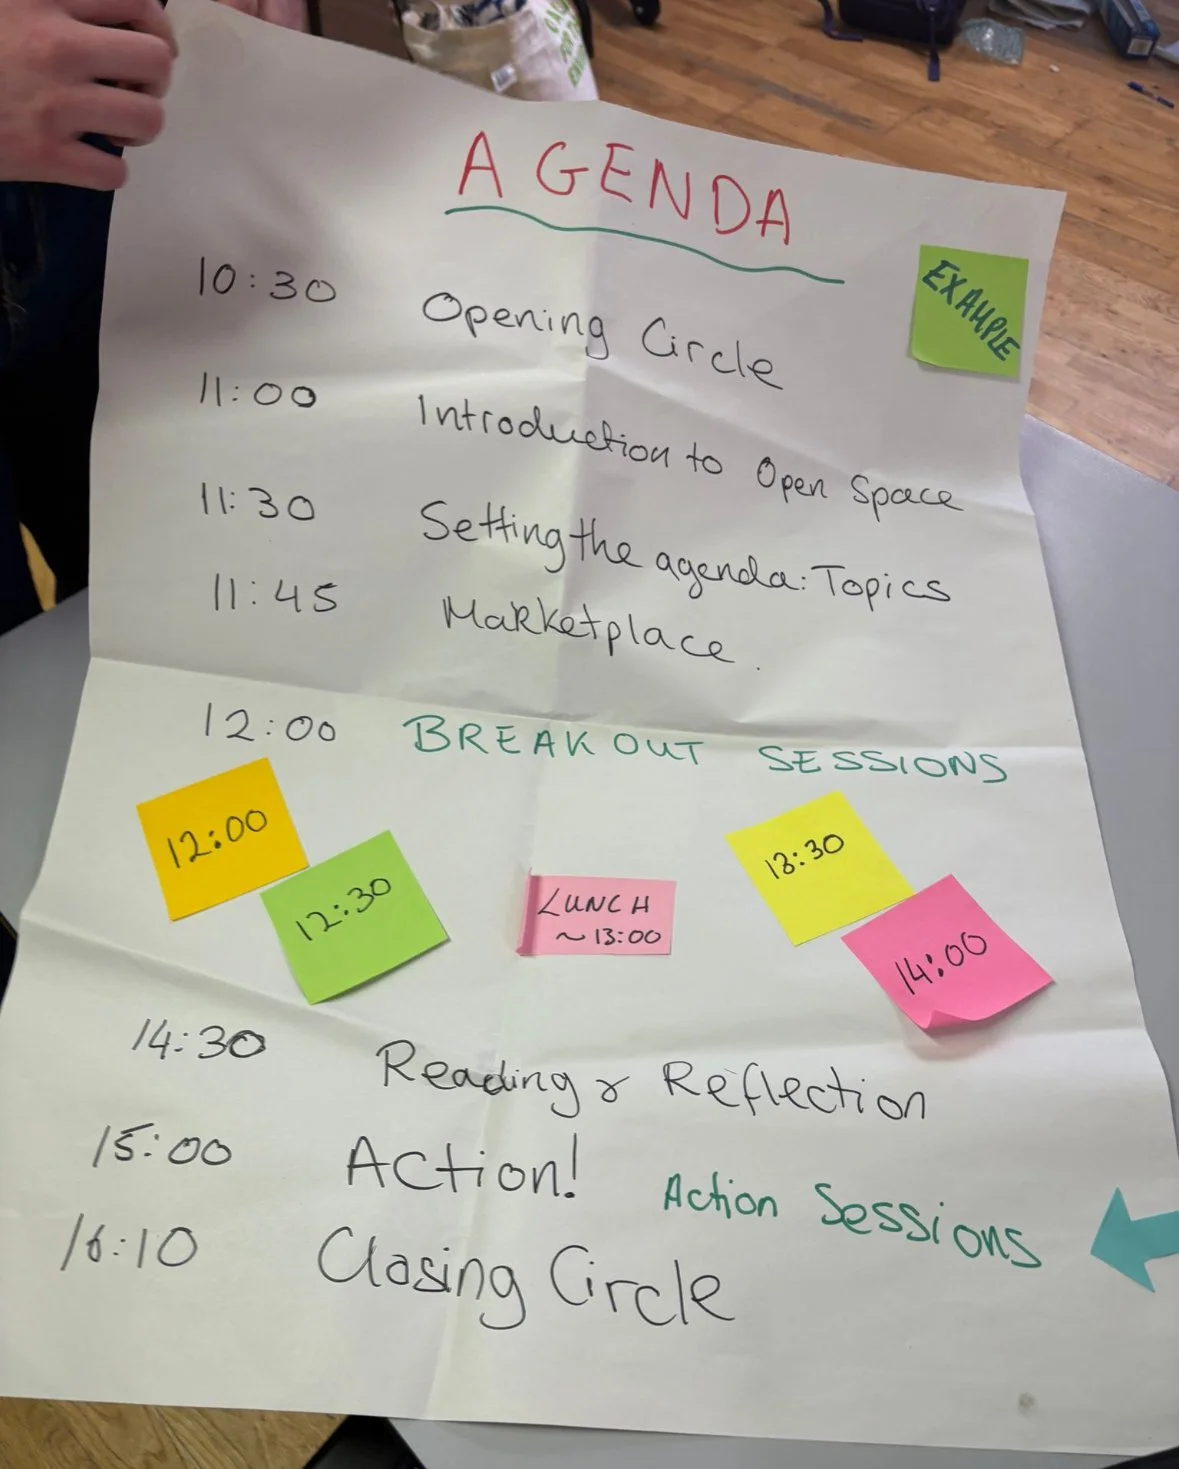 AGENDA
EXAMPLE
10:30 Opening Circle
11:00 Introduction to Open Space
11:30 Setting the agenda: Topics
11:45 Marketplace.
12:00 BREAKOUT SESSIONS
12:00
12:30
LUNCH
~ 13:00
13:30
14:00
14:30 Reading & Reflection
15:00 Action! Action Sessions
16:10 Closing Circle